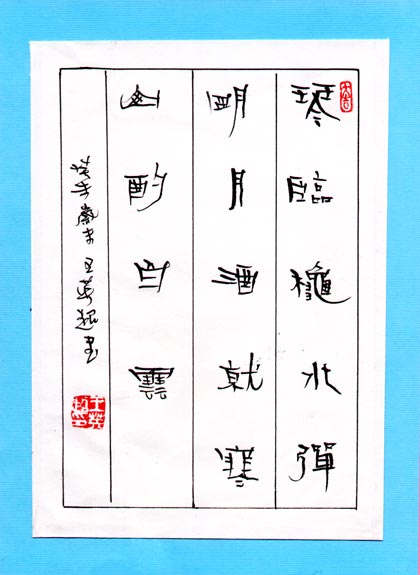 琴臨穐水彈
明月酒就寒
山酌白雲
癸未歲末王英超書